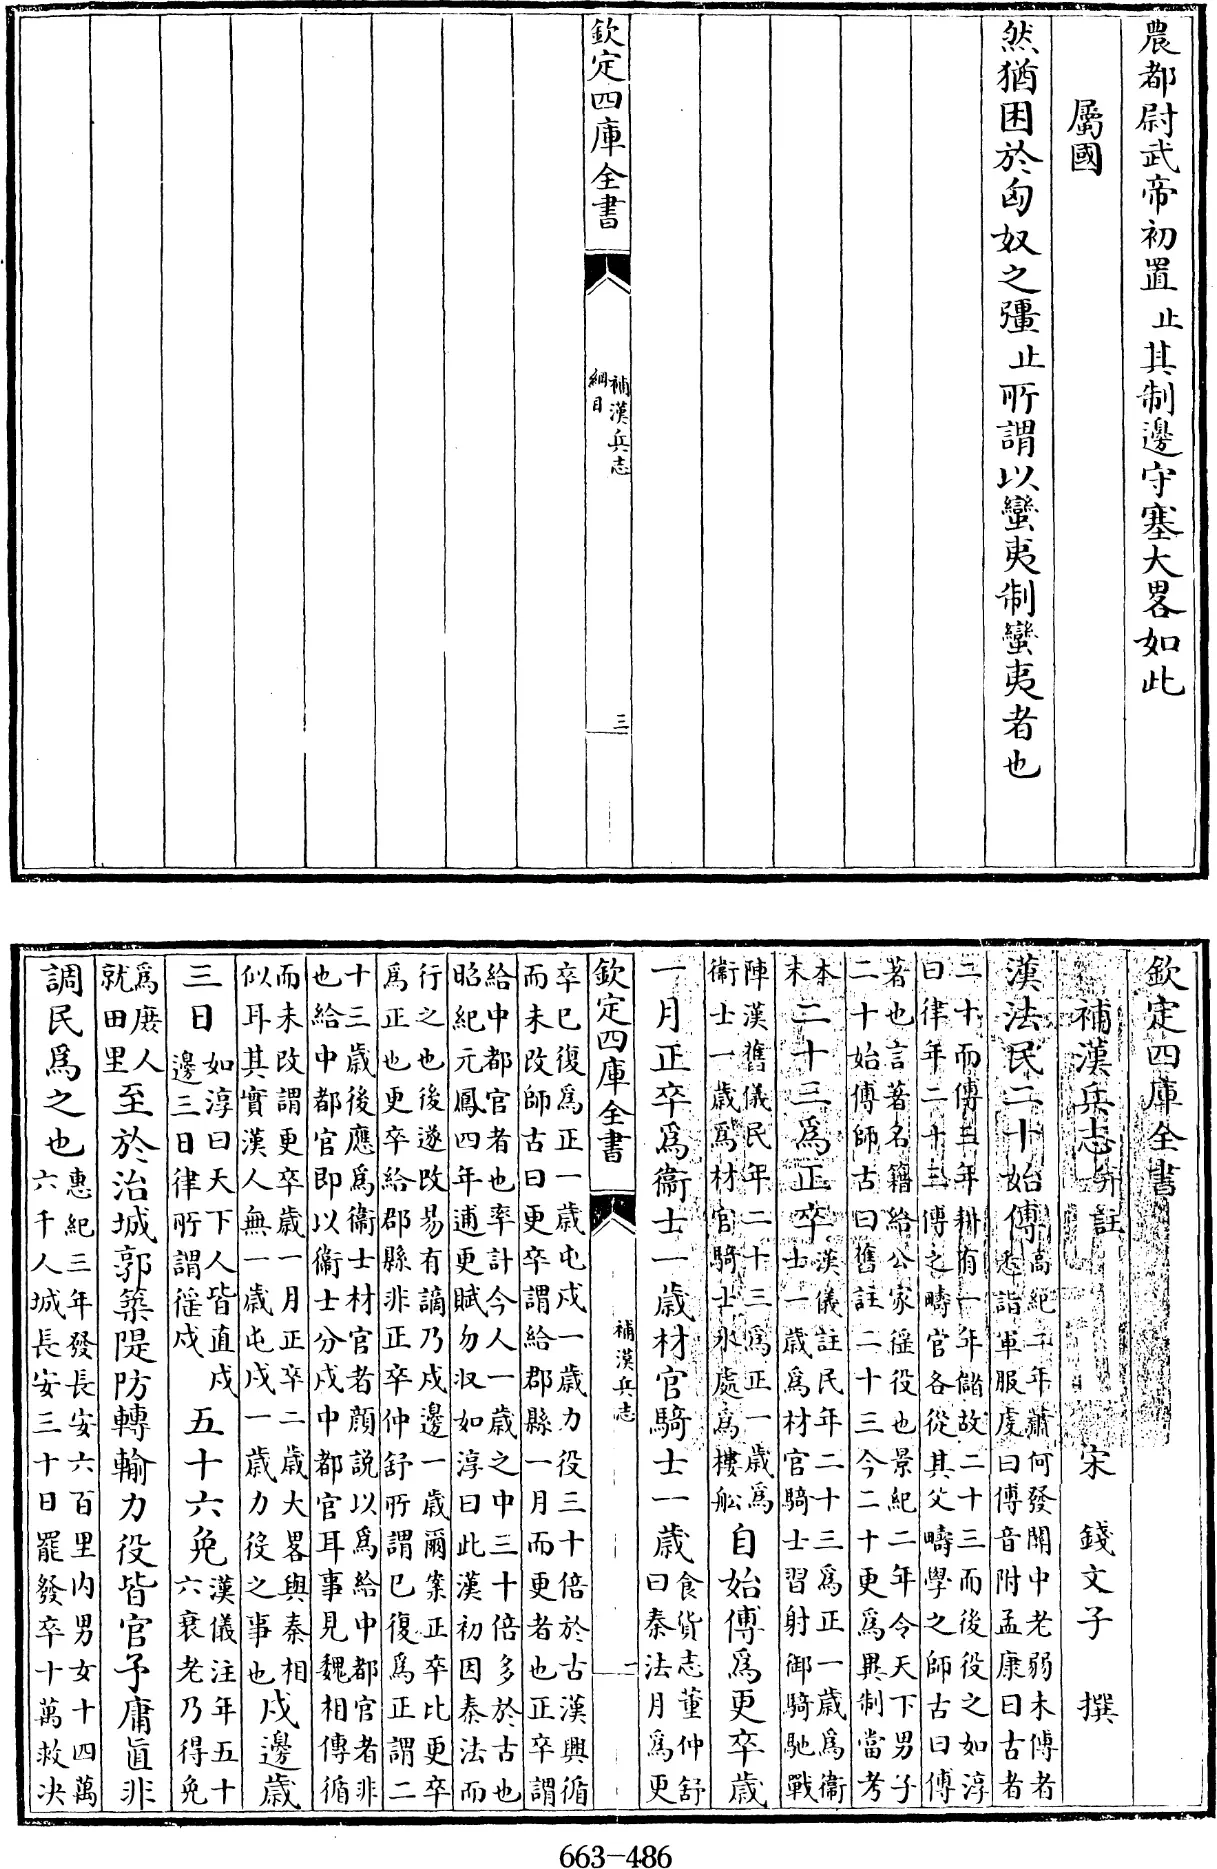 農都尉武帝初置止其制邊守塞大畧如此
屬國
然猶困於匈奴之彊止所謂以蠻夷制蠻夷者也
欽定四庫全書
補漢兵志
綱目
三
欽定四庫全書
補漢兵志并註
宋 錢文子 撰
漢法民二十始傅
高紀二年蕭何發關中老弱未傅者
悉詣軍服虔曰傅音附孟康曰古者
二十而傅三年耕有一年儲故二十三而後役之如淳
曰律年二十三傅之疇官各從其父疇學之師古曰傅
著也言著名籍給公家徭役也景紀二年令天下男子
二十始傅師古曰舊註二十三今二十更爲異制當考
本
末
二十三爲正卒
漢儀註民年二十三爲正一歲爲衞
士一歲爲材官騎士習射御騎馳戰
陣漢舊儀民年二十三爲正一歲爲
衞士一歲爲材官騎士水處爲樓舩
自始傅爲更卒歲
一月正卒爲衞士一歲材官騎士一歲
食貨志董仲舒
曰秦法月爲更
欽定四庫全書
補漢兵志
一
卒已復爲正一歲屯戍一歲力役三十倍於古漢興循
而未改師古曰更卒謂給郡縣一月而更者也正卒謂
給中都官者也率計今人一歲之中三十倍多於古也
昭紀元鳳四年逋更賦勿收如淳曰此漢初因秦法而
行之也後遂改易有謫乃戍邊一歲爾案正卒比更卒
爲正也更卒給郡縣非正卒仲舒所謂已復爲正謂二
十三歲後應爲衞士材官者顔説以爲給中都官者非
也給中都官即以衞士分戍中都官耳事見魏相傳循
而未改謂更卒歲一月正卒二歲大畧與秦相
似耳其實漢人無一歲屯戍一歲力役之事也
戍邊歲
三日
如淳曰天下人皆直戍
邊三日律所謂徭戍
五十六免
漢儀注年五十
六衰老乃得免
爲庶人
就田里
至於治城郭築隄防轉輸力役皆官予庸直非
調民爲之也
惠紀三年發長安六百里内男女十四萬
六千人城長安三十日罷發卒十萬救决
663-486